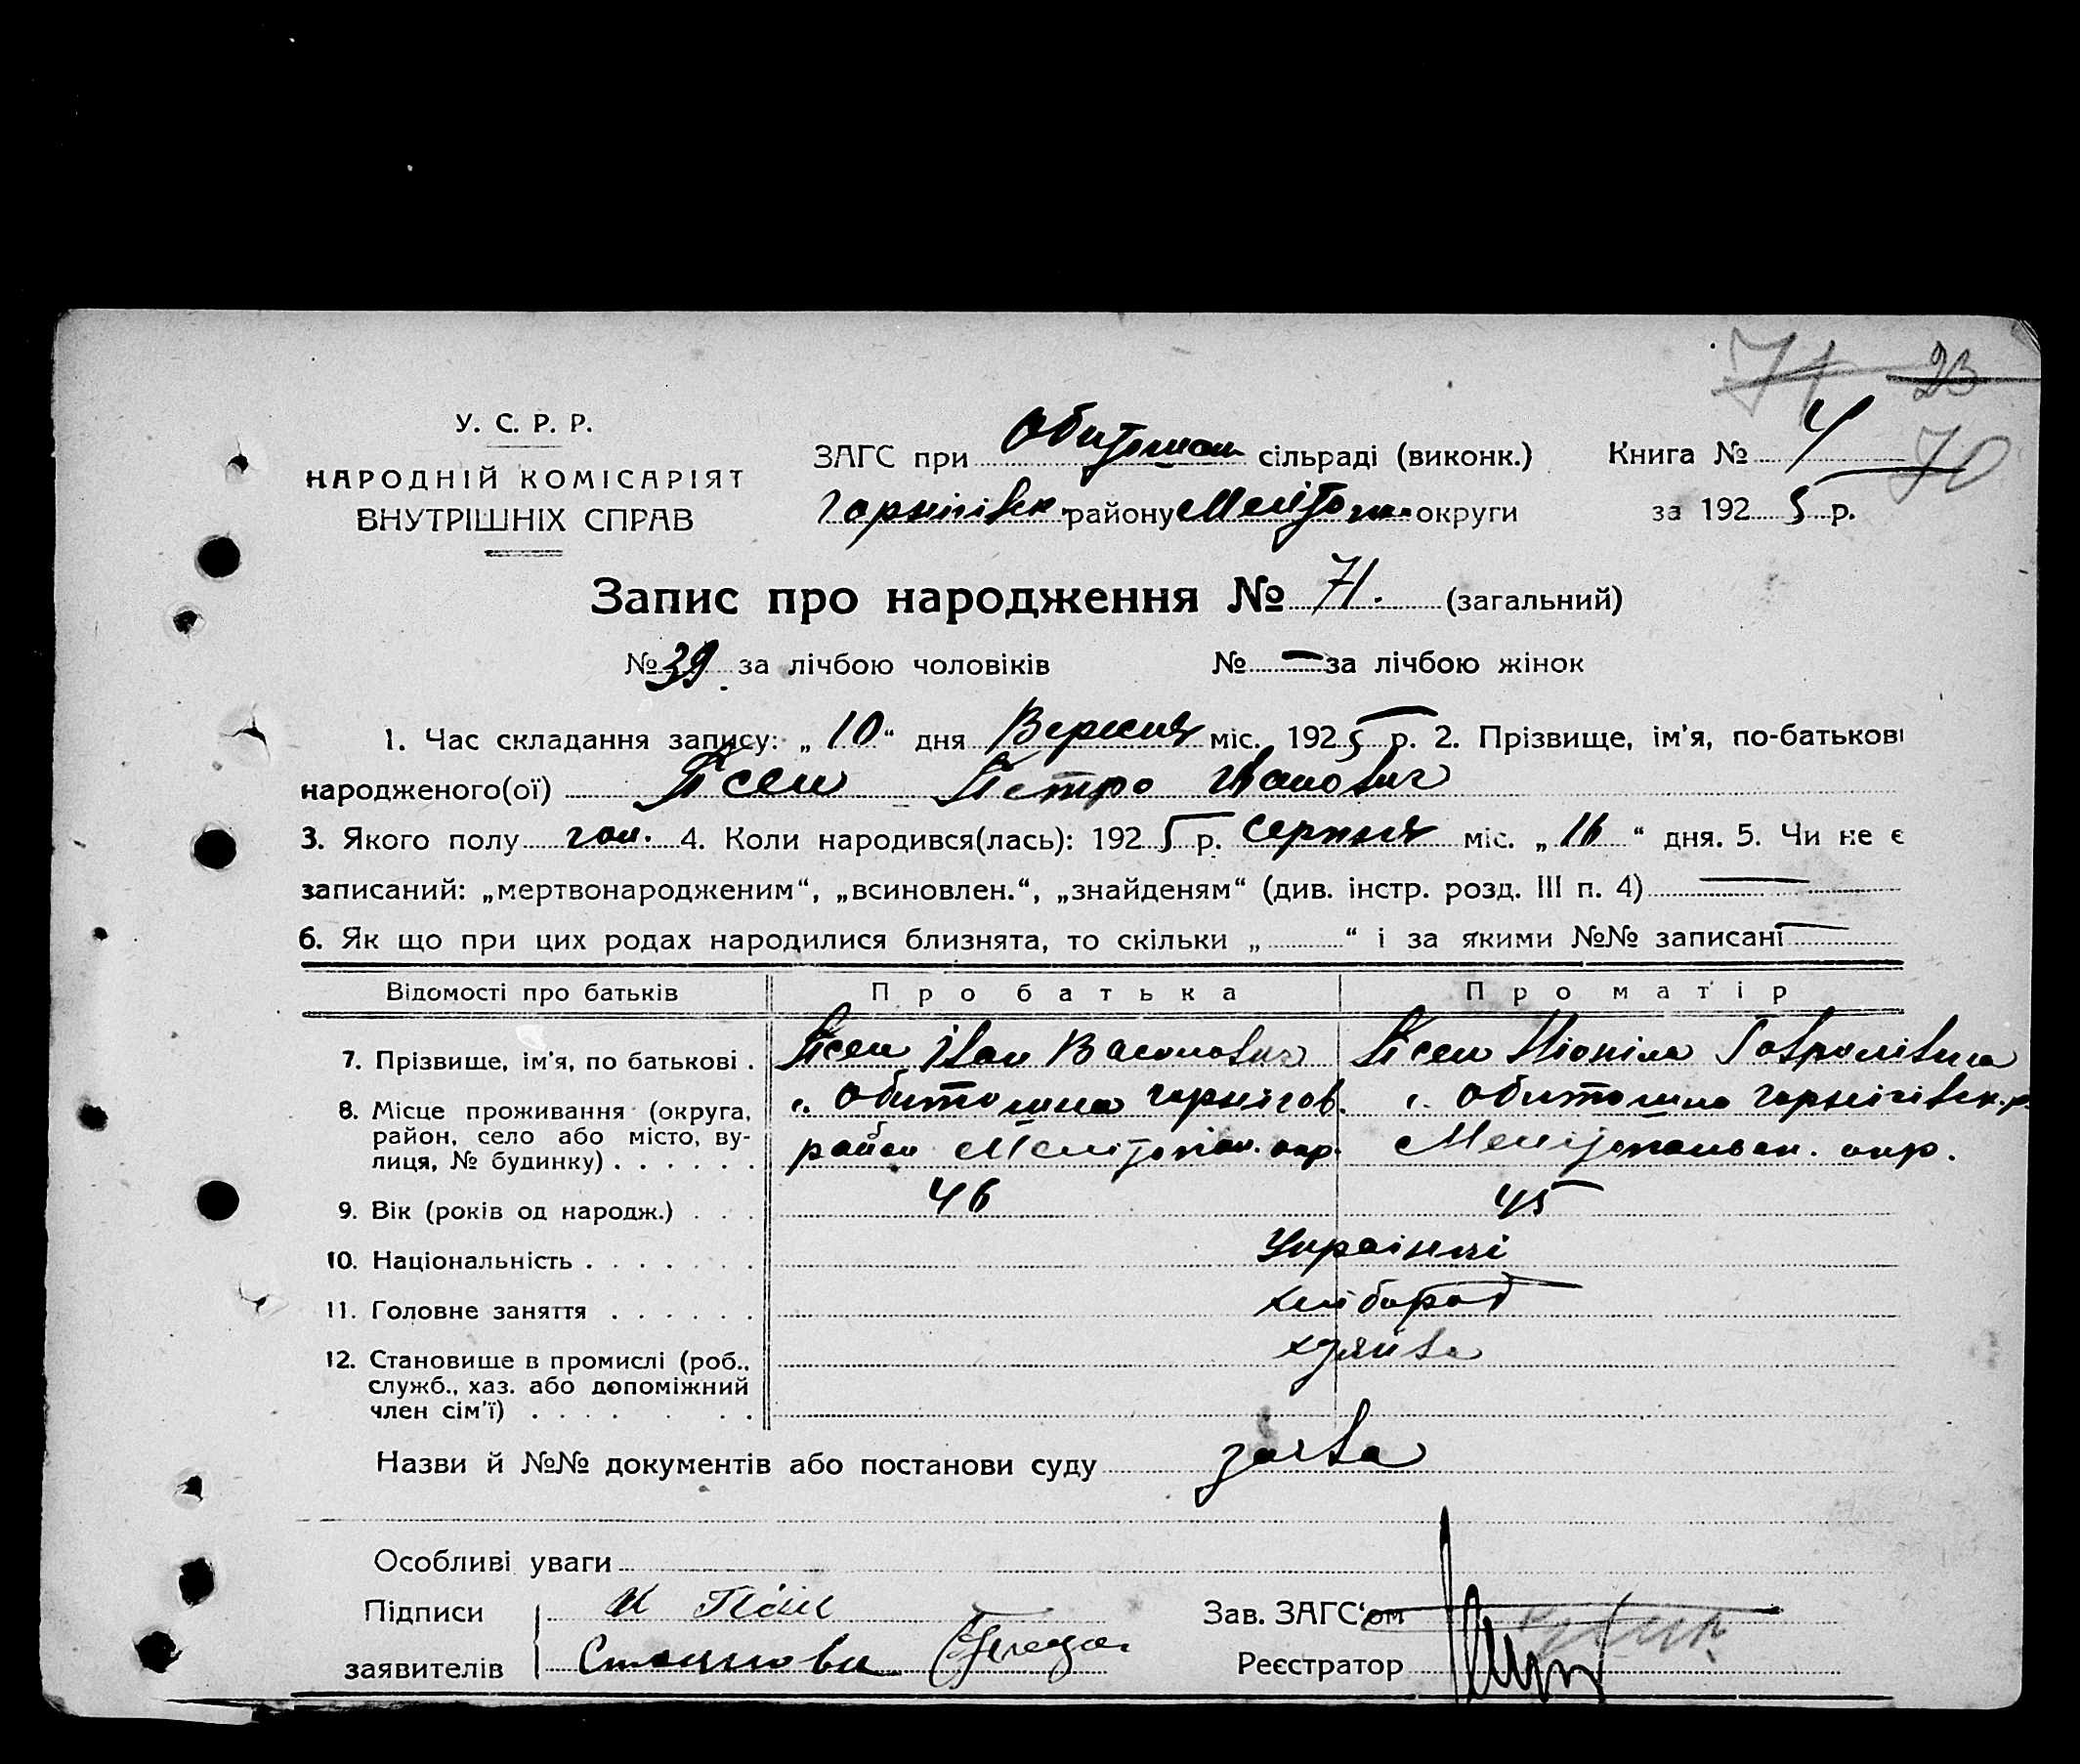 71 23
У. С. Р. Р.
НАРОДНІЙ КОМІСАРІЯТ
ВНУТРІШНІХ СПРАВ
ЗАГС при Обиточан сільраді (виконк.) Книга № 4
70
Чернігівськ. району Мелітоп. округи за 1925 р.
Запис про народження № 71. (загальний)
№ 39 за лічбою чоловіків № — за лічбою жінок
1. Час складання запису: „10“ дня Вересня міс. 1925 р. 2. Прізвище, ім'я, по-батькові
народженого(ої) Петро Іванович
3. Якого полу чол. 4. Коли народився(лась): 1925 р. Серпня міс. „16“ дня. 5. Чи не є
записаний: „мертвонародженим“, „всиновлен.“, „знайденям“ (див. інстр. розд. III п. 4) —
6. Як що при цих родах народилися близнята, то скільки „ “ і за якими №№ записані —
Відомості про батьків Про батька Про матір
7. Прізвище, ім'я, по батькові . Іван Гаврилівна
8. Місце проживання (округа, район, село або місто, вулиця, № будинку) . . . . . .
с. Обиточна Чернігов. район Мелітопол. окр.
с. Обиточна Чернігівськ. р. Мелітопольск. окр.
9. Вік (років од народж.) . . . 46 45
10. Національність . . . . . . . Українці
11. Головне заняття . . . . . . хліборob
12. Становище в промислі (роб.,
служб., хаз. або допоміжний
член сім'ї) . . . . . . .
Назви й №№ документів або постанови суду заява
Особливі уваги
Підписи
заявителів
Зав. ЗАГС'ом
Реєстратор